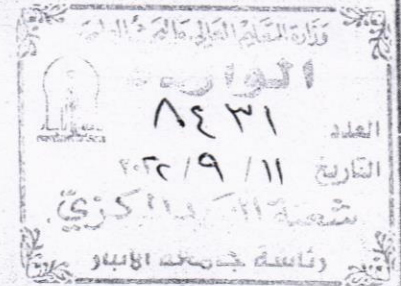 وزارة التعليم العالي والبحث العلمي
الواردة
العدد ٨٤٣١
التاريخ ١١/ ٩ /٢٠٢٢
شعبة البريد المركزي
رئاسة جامعة الانبار